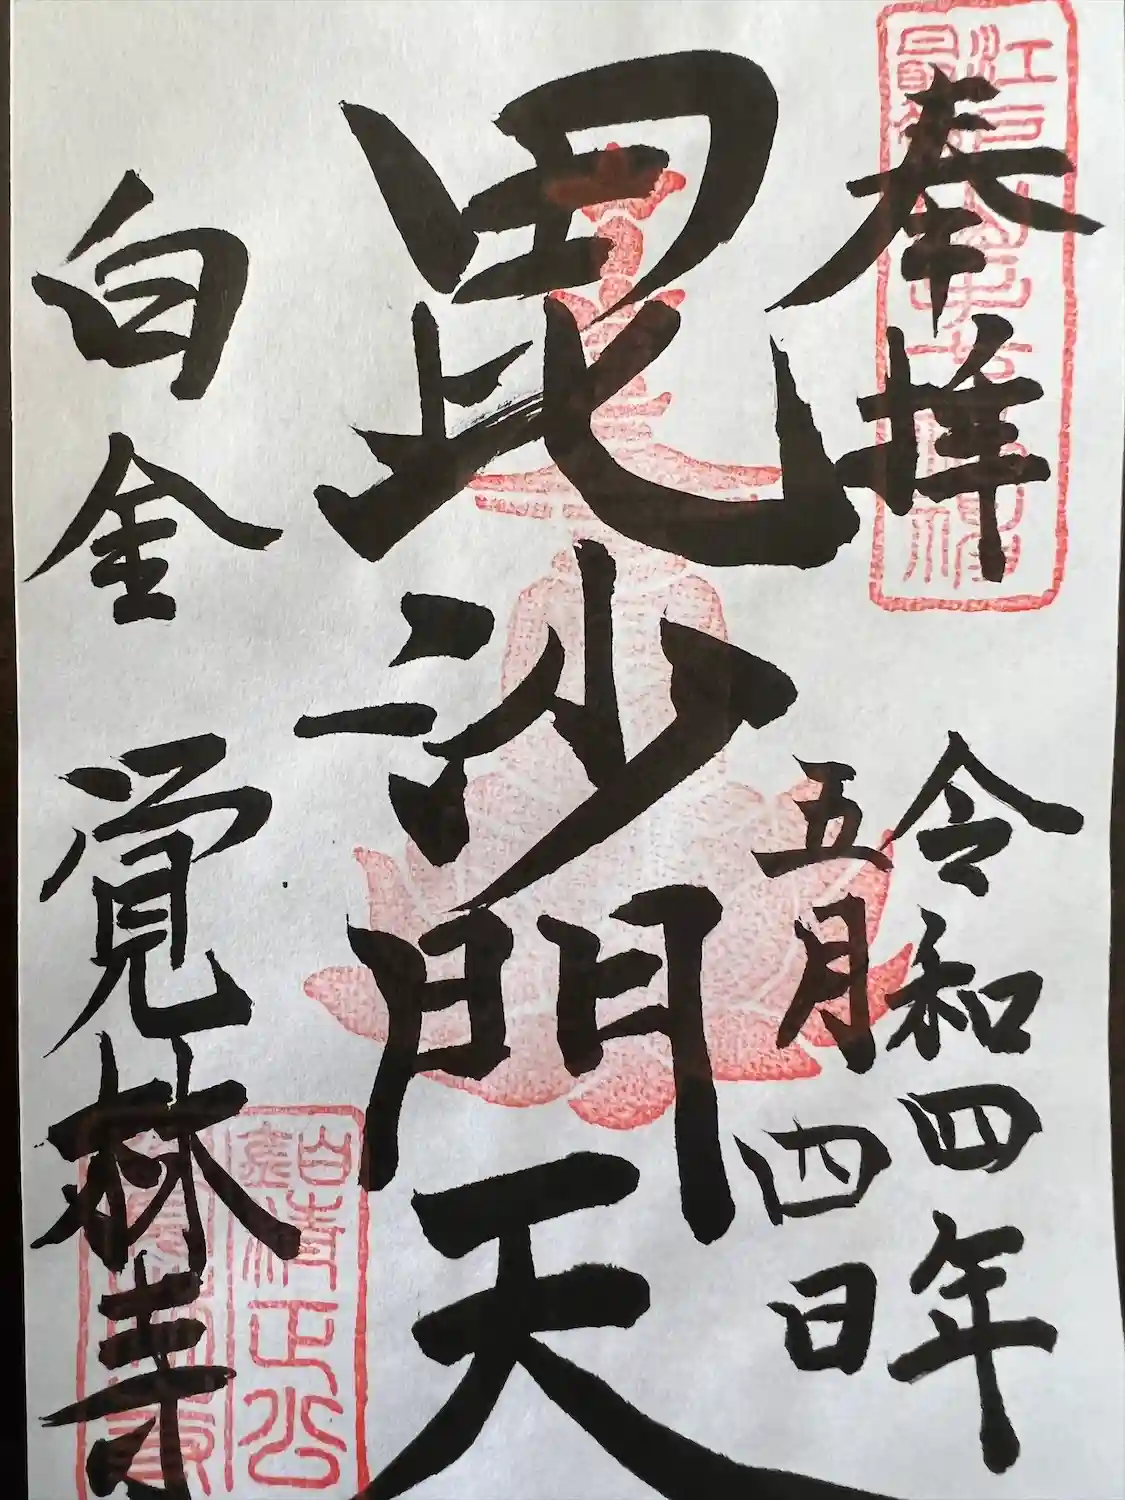 奉拝
令和四年
五月四日
毘沙門天
白金 覚林寺
清正公